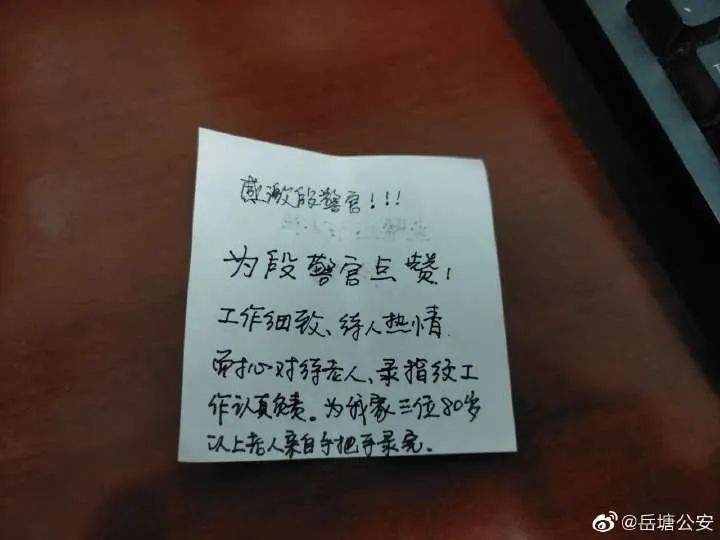 感激段警官!!!
为段警官点赞!
工作细致、待人热情
耐心对待老人、录指纹工
作认真负责。为我家三位80岁
以上老人亲自手把手录完。
@岳塘公安